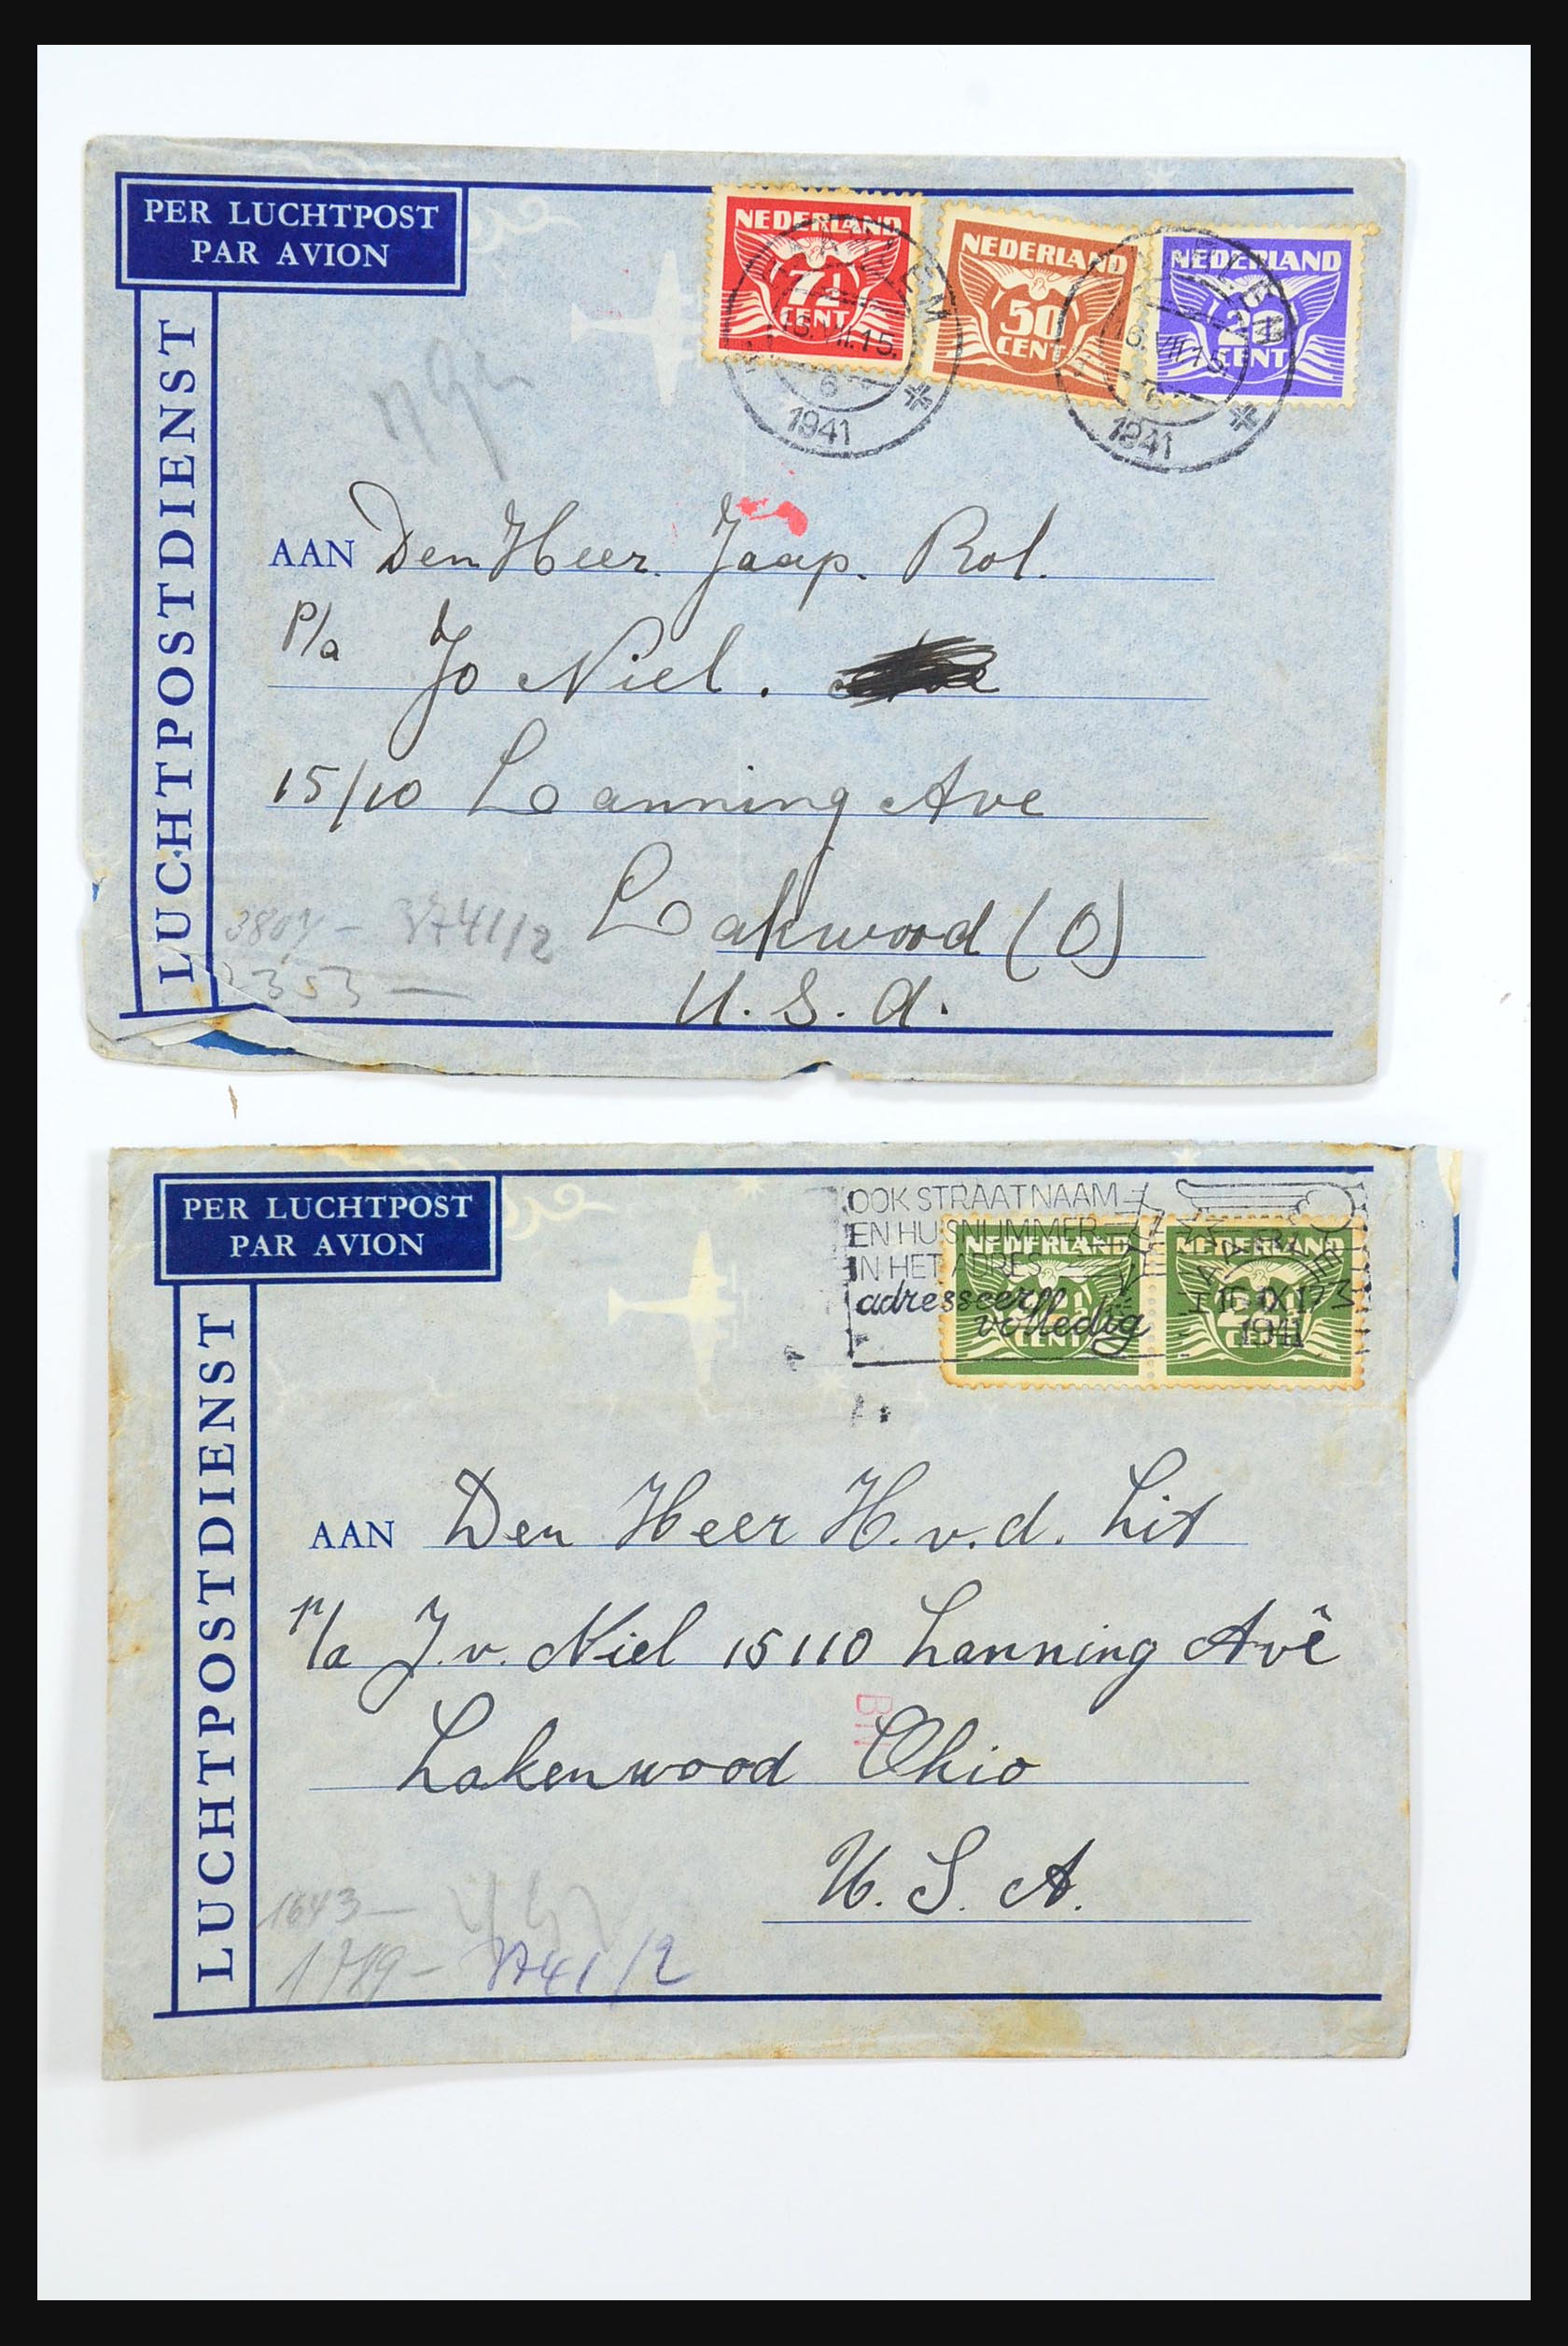 PER LUCHTPOST
PAR AVION
LUCHTPOSTDIENST
NEDERLAND
7½
CENT
NEDERLAND
50
CENT
NEDERLAND
20
CENT
HAARLEM
16.VII.15.
6
1941
HAARLEM
16.VII.15.
6
1941
AAN Den Heer. Jaap. Rol.
P/a Jo Niel.
15/10 Lanning Ave
Lakwood (O)
U.S.a.
3741/2
2353 —
PER LUCHTPOST
PAR AVION
LUCHTPOSTDIENST
OOK STRAATNAAM
EN HUISNUMMER
IN HET ADRES
adresseer
volledig
NEDERLAND
CENT
NEDERLAND
HAARLEM
16 IX 17
1941
AAN Den Heer H.v.d. Lit
p/a J.v. Niel 15110 Lanning Avê
Lakenwood Ohio
U.S.A.
1643 —
1789 - 3741/2